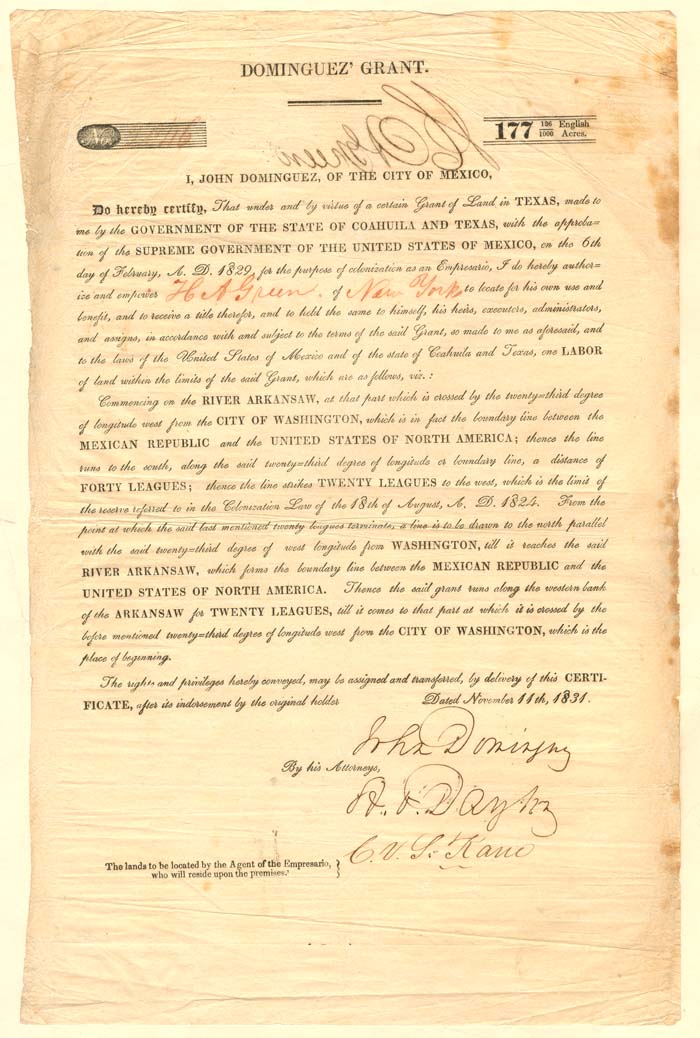 DOMINGUEZ' GRANT.
No
177 136/1000 English Acres.
I, JOHN DOMINGUEZ, OF THE CITY OF MEXICO,
Do hereby certify, That under and by virtue of a certain Grant of Land in TEXAS, made to
me by the GOVERNMENT OF THE STATE OF COAHUILA AND TEXAS, with the approba=
tion of the SUPREME GOVERNMENT OF THE UNITED STATES OF MEXICO, on the 6th
day of February, A. D. 1829, for the purpose of colonization as an Empresario, I do hereby author=
ize and empower H A Green. of New York to locate for his own use and
benefit, and to receive a title therefor, and to hold the same to himself, his heirs, executors, administrators,
and assigns, in accordance with and subject to the terms of the said Grant, so made to me as aforesaid, and
to the laws of the United States of Mexico and of the state of Coahuila and Texas, one LABOR
of land within the limits of the said Grant, which are as follows, viz.:
Commencing on the RIVER ARKANSAW, at that part which is crossed by the twenty=third degree
of longitude west from the CITY OF WASHINGTON, which is in fact the boundary line between the
MEXICAN REPUBLIC and the UNITED STATES OF NORTH AMERICA; thence the line
runs to the south, along the said twenty=third degree of longitude or boundary line, a distance of
FORTY LEAGUES; thence the line strikes TWENTY LEAGUES to the west, which is the limit of
the reserve referred to in the Colonization Law of the 18th of August, A. D. 1824. From the
point at which the said last mentioned twenty leagues terminate, a line is to be drawn to the north parallel
with the said twenty=third degree of west longitude from WASHINGTON, till it reaches the said
RIVER ARKANSAW, which forms the boundary line between the MEXICAN REPUBLIC and the
UNITED STATES OF NORTH AMERICA. Thence the said grant runs along the western bank
of the ARKANSAW for TWENTY LEAGUES, till it comes to that part at which it is crossed by the
before mentioned twenty=third degree of longitude west from the CITY OF WASHINGTON, which is the
place of beginning.
The rights and privileges hereby conveyed, may be assigned and transferred, by delivery of this CERTI-
FICATE, after its indorsement by the original holder Dated November 11th, 1831.
John Dominguez
By his Attorneys,
C. V. S. Kane
The lands to be located by the Agent of the Empresario,
who will reside upon the premises.